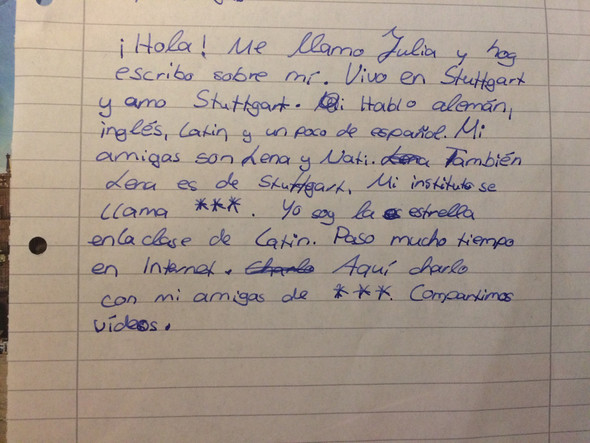 ¡Hola! Me llamo Julia y hog
escribo sobre mí. Vivo en Stuttgart
y amo Stuttgart. Hablo alemán,
inglés, Latin y un poco de español. Mi
amigas son Lena y Nati. También
Lena es de Stuttgart. Mi instituto se
llama ***. Yo soy la estrella
en la clase de Latin. Paso mucho tiempo
en Internet. Aquí charlo
con mi amigas de ***. Compartimos
vídeos.